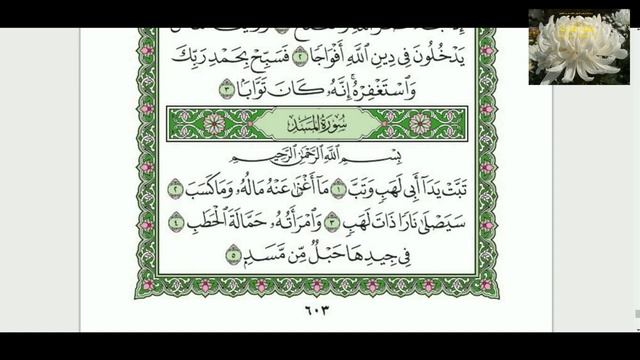 يَدْخُلُونَ فِي دِينِ اللَّهِ أَفْوَاجًا ٢ فَسَبِّحْ بِحَمْدِ رَبِّكَ
وَاسْتَغْفِرْهُ ۚ إِنَّهُ كَانَ تَوَّابًا ٣
سُورَةُ المَسَدِ
بِسْمِ اللَّهِ الرَّحْمَٰنِ الرَّحِيمِ
تَبَّتْ يَدَا أَبِي لَهَبٍ وَتَبَّ ١ مَا أَغْنَىٰ عَنْهُ مَالُهُ وَمَا كَسَبَ ٢
سَيَصْلَىٰ نَارًا ذَاتَ لَهَبٍ ٣ وَامْرَأَتُهُ حَمَّالَةَ الْحَطَبِ ٤
فِي جِيدِهَا حَبْلٌ مِّن مَّسَدٍ ٥
٦٠٣